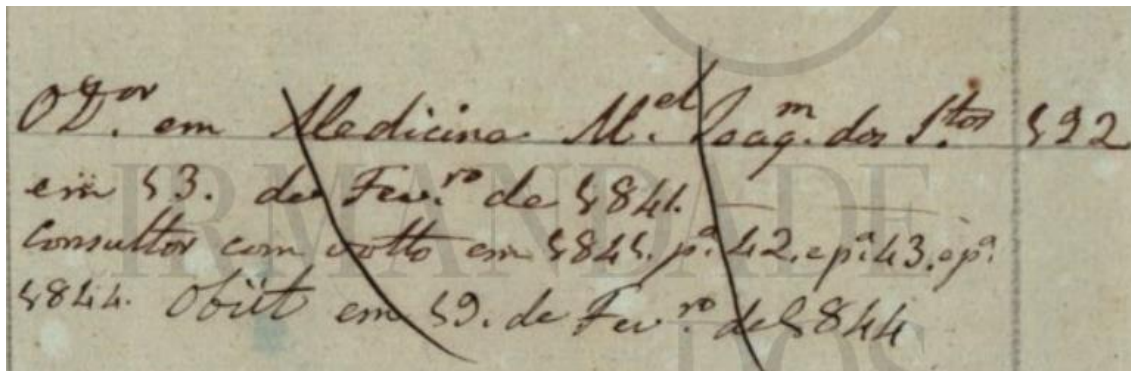 O D.or em Medicina M.el Joaq.m dos S.tos 192
em 13. de Fev.ro de 1841.
Consultor com votto em 1841. p.a 42. e p.a 43. e p.a
1844. Obiit em 19. de Fev.ro de 1844
IRMANDADE
DOS